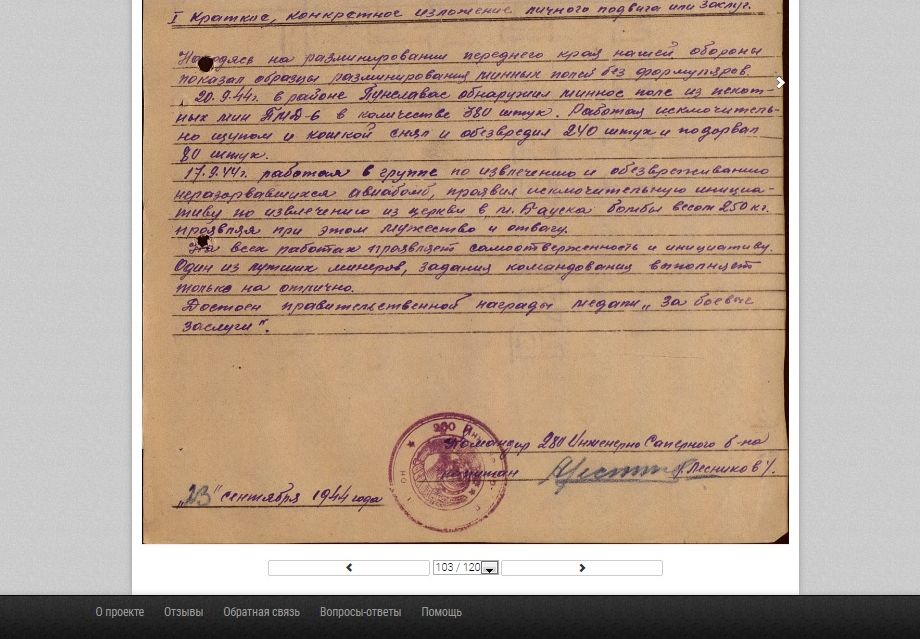 I Краткие, конкретное изложение личного подвига или заслуг.
Находясь на разминировании переднего края нашей обороны
показал образцы разминирования минных полей без формуляров.
20.9.44г. в районе Пунславас обнаружил минное поле из пехот-
ных мин ПМД-6 в количестве 380 штук. Работая исключитель-
но щупом и кошкой снял и обезвредил 240 штук и подорвал
80 штук.
17.9.44г. работая в группе по извлечению и обезвреживанию
неразорвавшихся авиабомб, проявил исключительную инициа-
тиву по извлечению из церкви в м. Бауска бомбы весом 250 кг.
проявляя при этом мужество и отвагу.
На всех работах проявляет самоотверженность и инициативу.
Один из лучших минеров, задания командования выполняет
только на отлично.
Достоин правительственной награды медали „За боевые
заслуги".
Командир 280 Инженерно Саперного б-на
капитан /Лесников/.
„23" сентября 1944 года
103 / 120
О проекте Отзывы Обратная связь Вопросы-ответы Помощь